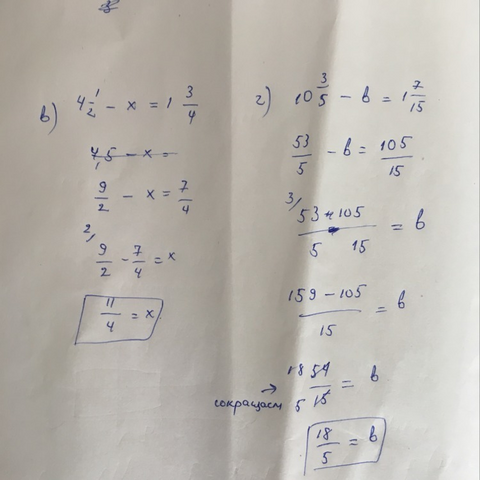 в) 4 1/2 - x = 1 3/4
4,5 - x =
9/2 - x = 7/4
2/ 9/2 - 7/4 = x
11/4 = x
г) 10 3/5 - в = 1 7/15
53/5 - в = 105/15
3/ 53 - 105 / 5 15 = в
159 - 105 / 15 = в
сокращаем → 18 54 / 5 15 = в
18/5 = в